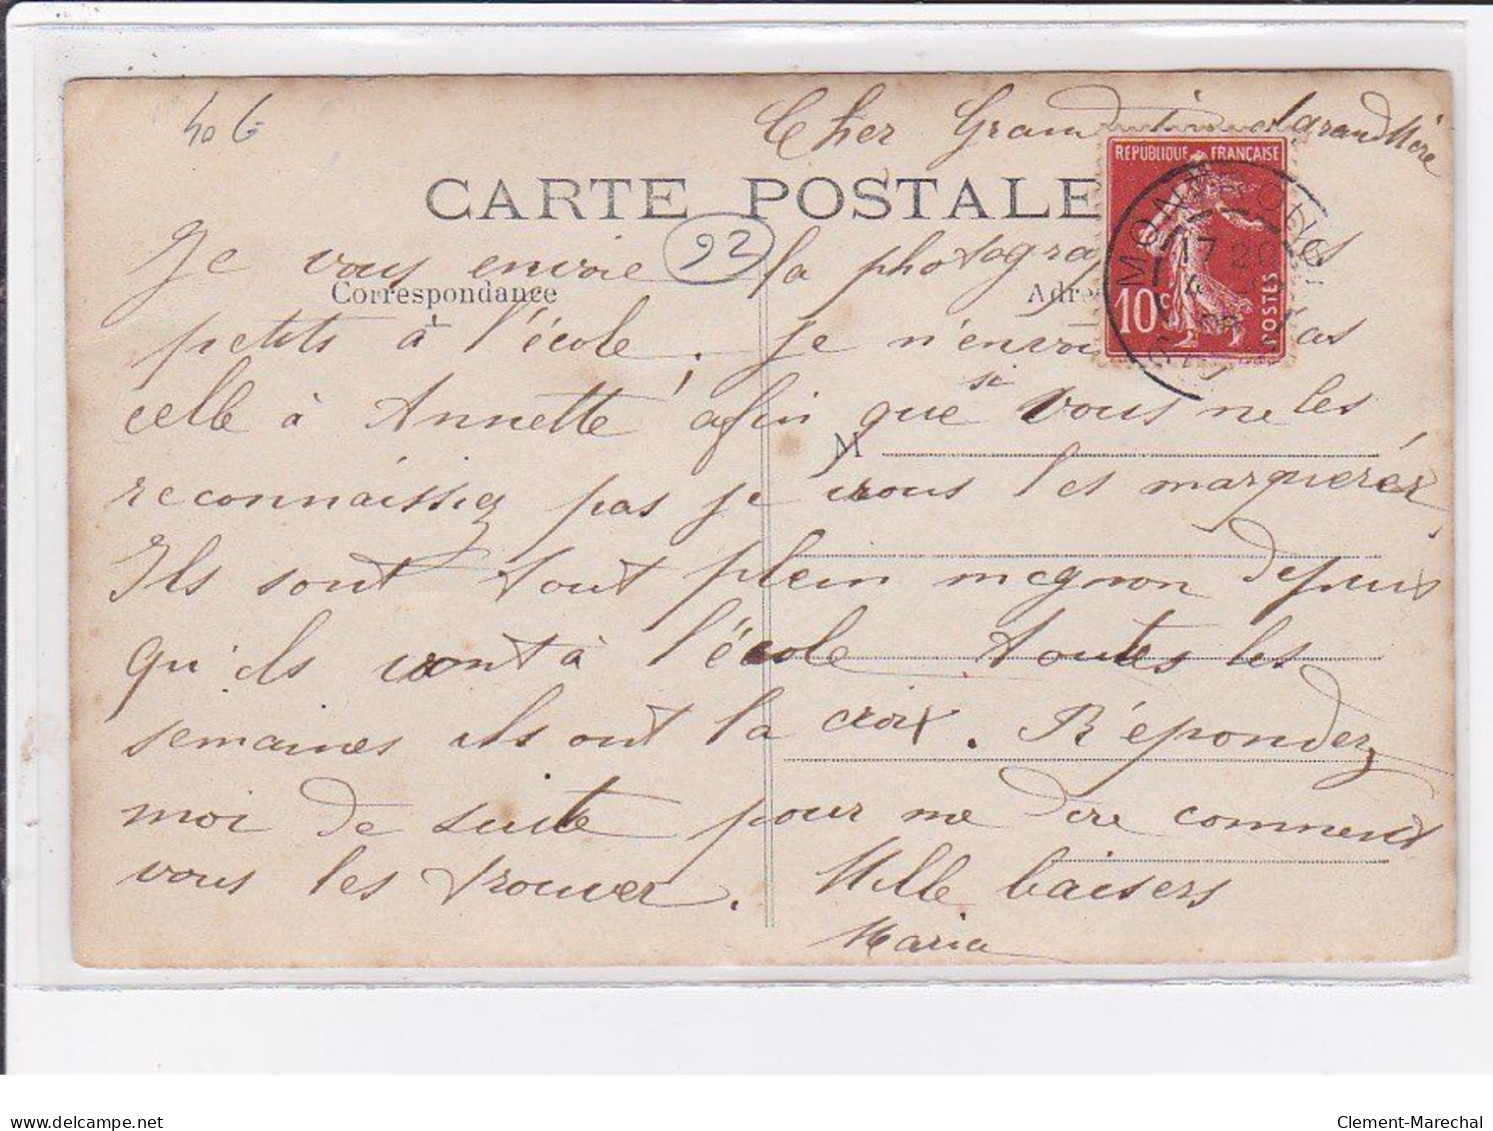 40 6
Cher Grand grandMère
RÉPUBLIQUE FRANÇAISE
CARTE POSTALE
10c POSTES
17 20
Je vous envoie 92 la photogra
Correspondance
petits à l'école. je n'envoi pas
celle à Annette afin que si vous ne les
M
reconnaissiez pas je vous les marquerér
Ils sont tout plein megnon depuis
qu'ils vont à l'école toutes les
semaines ils ont la croix. Répondez
moi de suite pour me dire comment
vous les trouver. Mille baisers
Maria
delcampe.net
Clement-Marechal